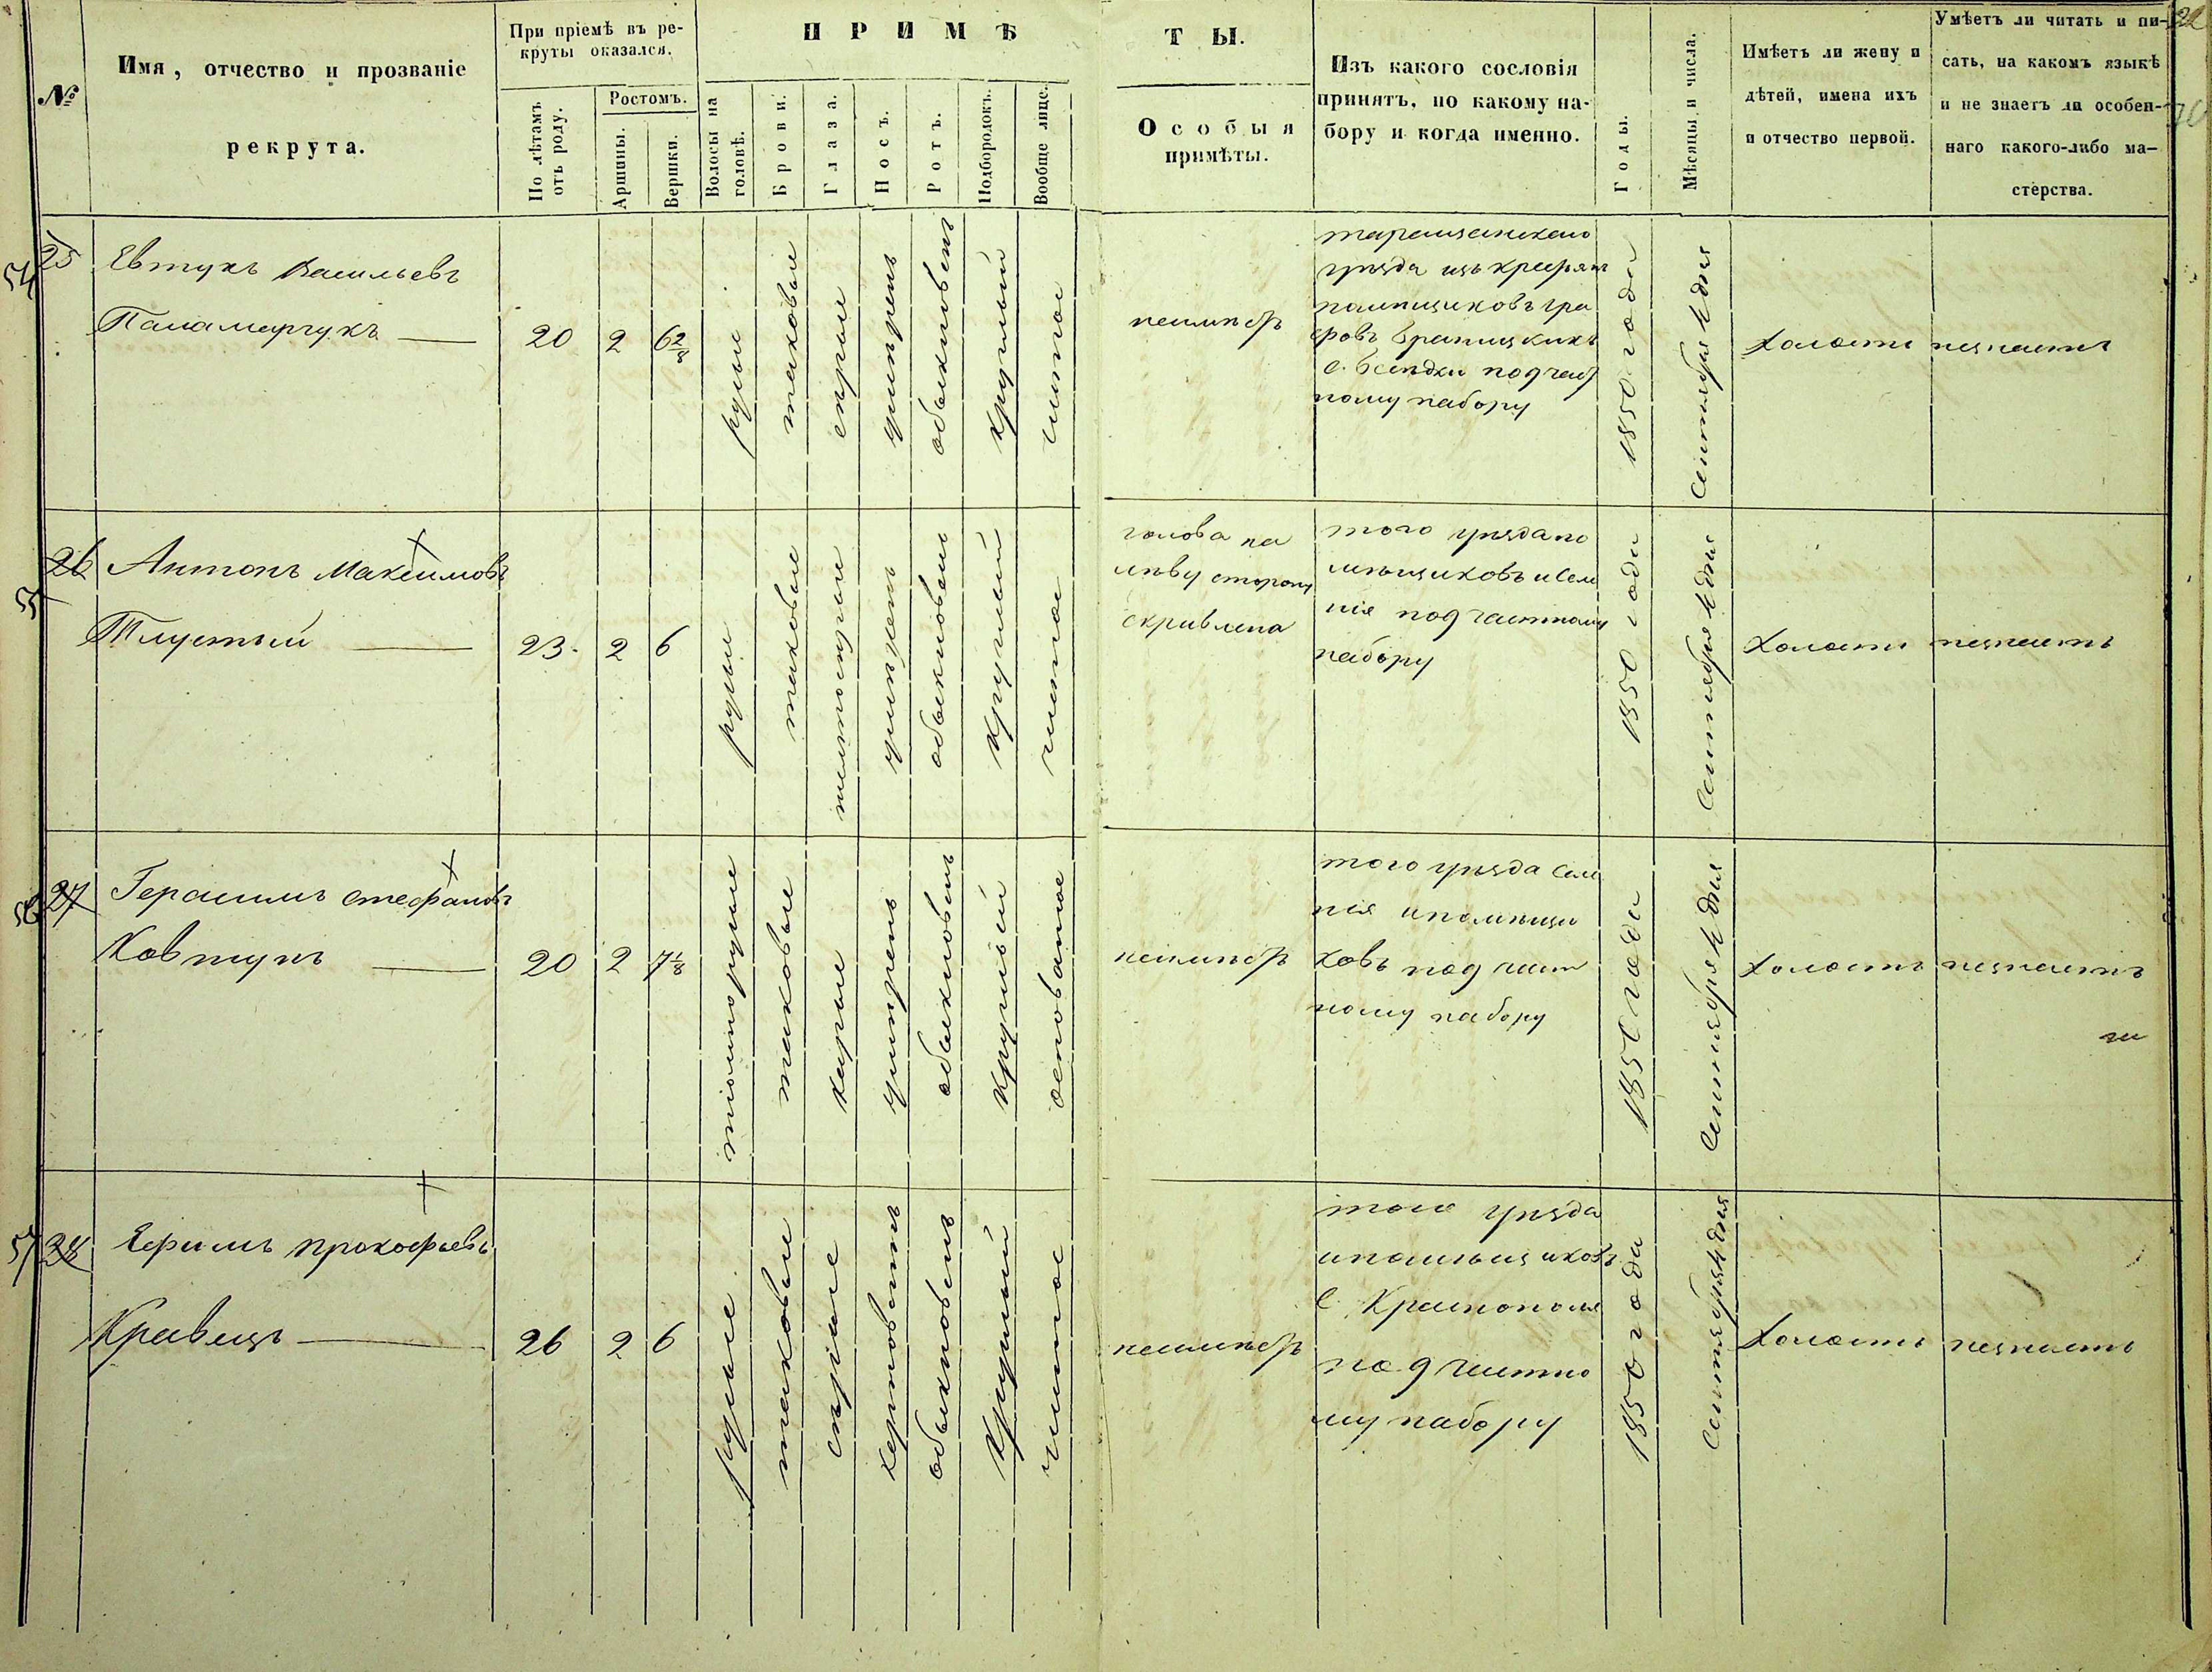 22
№
Имя, отчество и прозваніе
рекрута.
При пріемѣ въ ре-
круты оказался.
По лѣтамъ
отъ роду.
Ростомъ.
Аршины.
Вершки.
ПРИМѢ
ТЫ.
Волосы на
головѣ.
Брови.
Глаза.
Носъ.
Ротъ.
Подбородокъ.
Вообще лице.
Особыя
примѣты.
Изъ какого сословія
принятъ, по какому на-
бору и когда именно.
Годы.
Мѣсяцы и числа.
Имѣетъ ли жену и
дѣтей, имена ихъ
и отчество первой.
Умѣетъ ли читать и пи-
сать, на какомъ языкѣ
и не знаетъ ли особен-
наго какого-либо ма-
стерства.
54
25
Евтухъ Васильевъ
Паламарчукъ
20
2
6 2/8
русые
таковые
серые
умѣрен
обыкновен
круглый
чистое
неимѣет
таращанскаго
уѣзда изъ крестян
помѣщиковъ гра
фовъ Браницкихъ
подчаст
ному набору
1850 года
Сентября дня
холостъ
незнаетъ
55
26
Антонъ Максимовъ
Тлустый
23
2
6
русые
таковые
умѣрен
обыкновен
круглый
чистое
голова на
лѣву сторону
скривлена
того уѣзда по
мѣщиковъ и сел
нія под частному
набору
1850 года
Сентября дня
холостъ
незнаетъ
56
27
Герасимъ Стефановъ
Ковтунъ
20
2
7 1/8
темнорусые
таковые
карые
умѣрен
обыкновен
круглый
осповатое
неимѣет
того уѣзда сел
нія и помѣщи
ковъ под част
ному набору
1850 года
Сентября дня
холостъ
незнаетъ
57
28
Ефимъ Прокофьевъ
Кравецъ
26
2
6
русые
таковые
серые
обыкновен
круглый
чистое
неимѣет
того уѣзда
ипомѣщиковъ
с. Краснополя
под частно
му набору
1850 года
Сентября дня
холостъ
незнаетъ